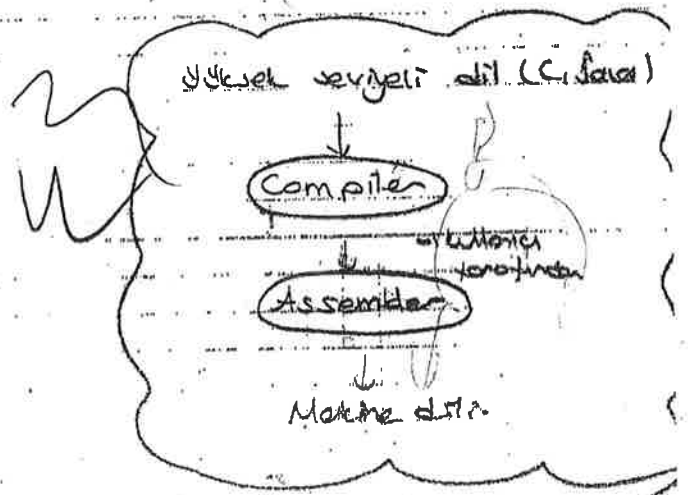 yüksek seviyeli dil (C, Java)
Compiler
kullanıcı
tarafından
Assembler
Makine dili